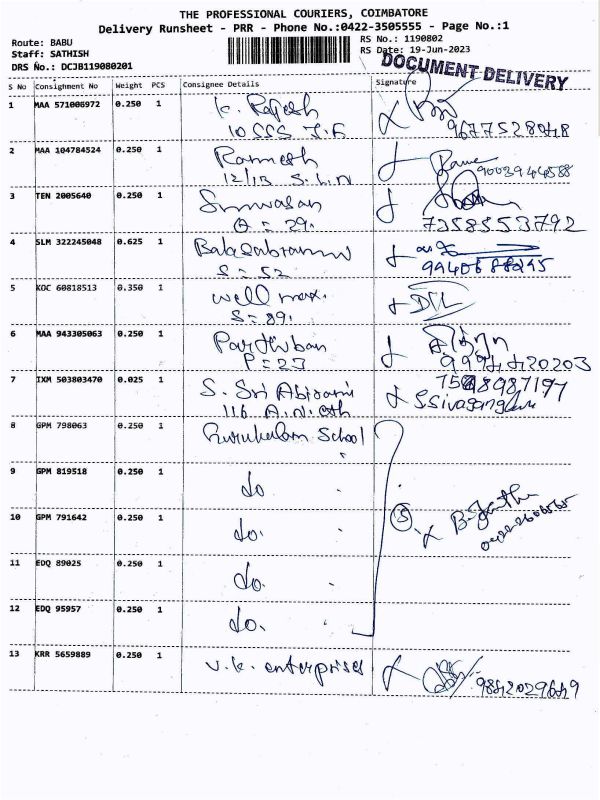 THE PROFESSIONAL COURIERS, COIMBATORE
Delivery Runsheet - PRR - Phone No.:0422-3505555 - Page No.:1
Route: BABU
RS No.: 1190802
Staff: SATHISH
RS Date: 19-Jun-2023
DRS No.: DCJB119080201
DOCUMENT DELIVERY
S No Consignment No Weight PCS Consignee Details Signature
1 MAA 571008972 0.250 1 K. Rajesh
10 SSS I.E 9677528048
2 MAA 104784524 0.250 1 Ramesh
12/13 S.L.N 9003944588
3 TEN 2005640 0.250 1 Srinivasan
A = 29. 7358553792
4 SLM 322245048 0.625 1 Balasubramani
S = 52 9940688245
5 KOC 60818513 0.350 1 well max.
S = 89.
6 MAA 943305063 0.250 1 Parthiban
P = 23 9994420203
7 IXM 503803470 0.025 1 S. Sri Abirami
116 A.N. 
8 GPM 798063 0.250 1 Gurukulam School
9 GPM 819518 0.250 1 do
10 GPM 791642 0.250 1 do. 5
11 EDQ 89025 0.250 1 do.
12 EDQ 95957 0.250 1 do.
13 KRR 5659889 0.250 1 V.K. enterprises 9842029649